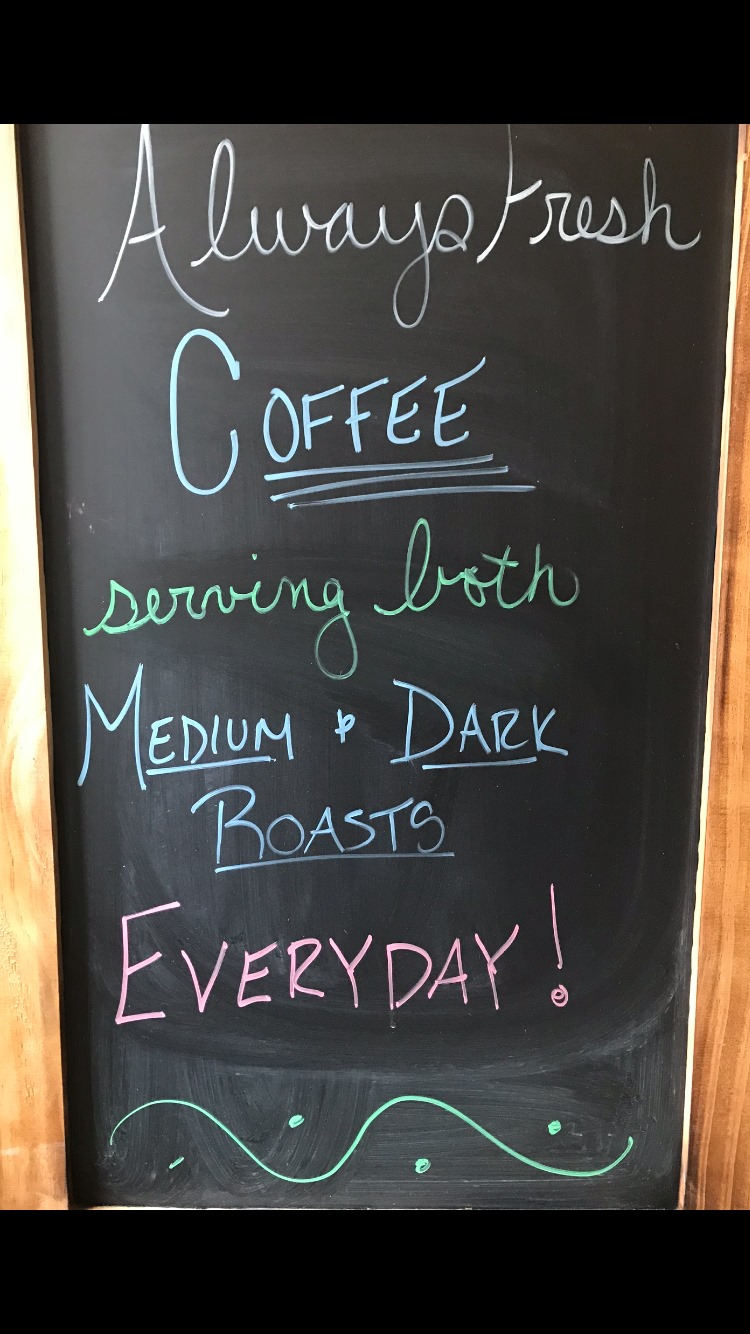 Always Fresh
COFFEE
serving both
MEDIUM & DARK
ROASTS
EVERYDAY!